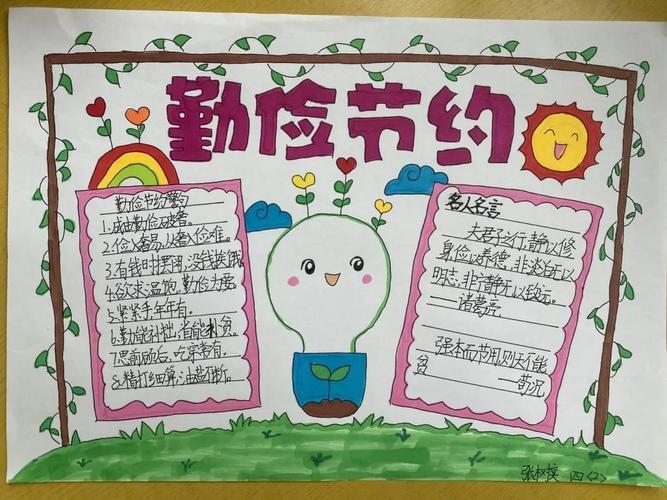 勤俭节约
勤俭节约
1.成由勤俭破奢。
2.俭入奢易,从奢入俭难。
3.有钱时摆阔,没钱挨饿。
4.欲求温饱,勤俭为度。
5.紧紧手年年有。
6.勤能补拙,省能补贫。
7.思前顾后,吃穿常有。
8.精打细算,油盐不断。
名人名言
夫君子之行,静以修
身,俭以养德,非淡泊无以
明志,非宁静无以致远。
——诸葛亮
强本而节用则天不能
贫——荀况
四<2>